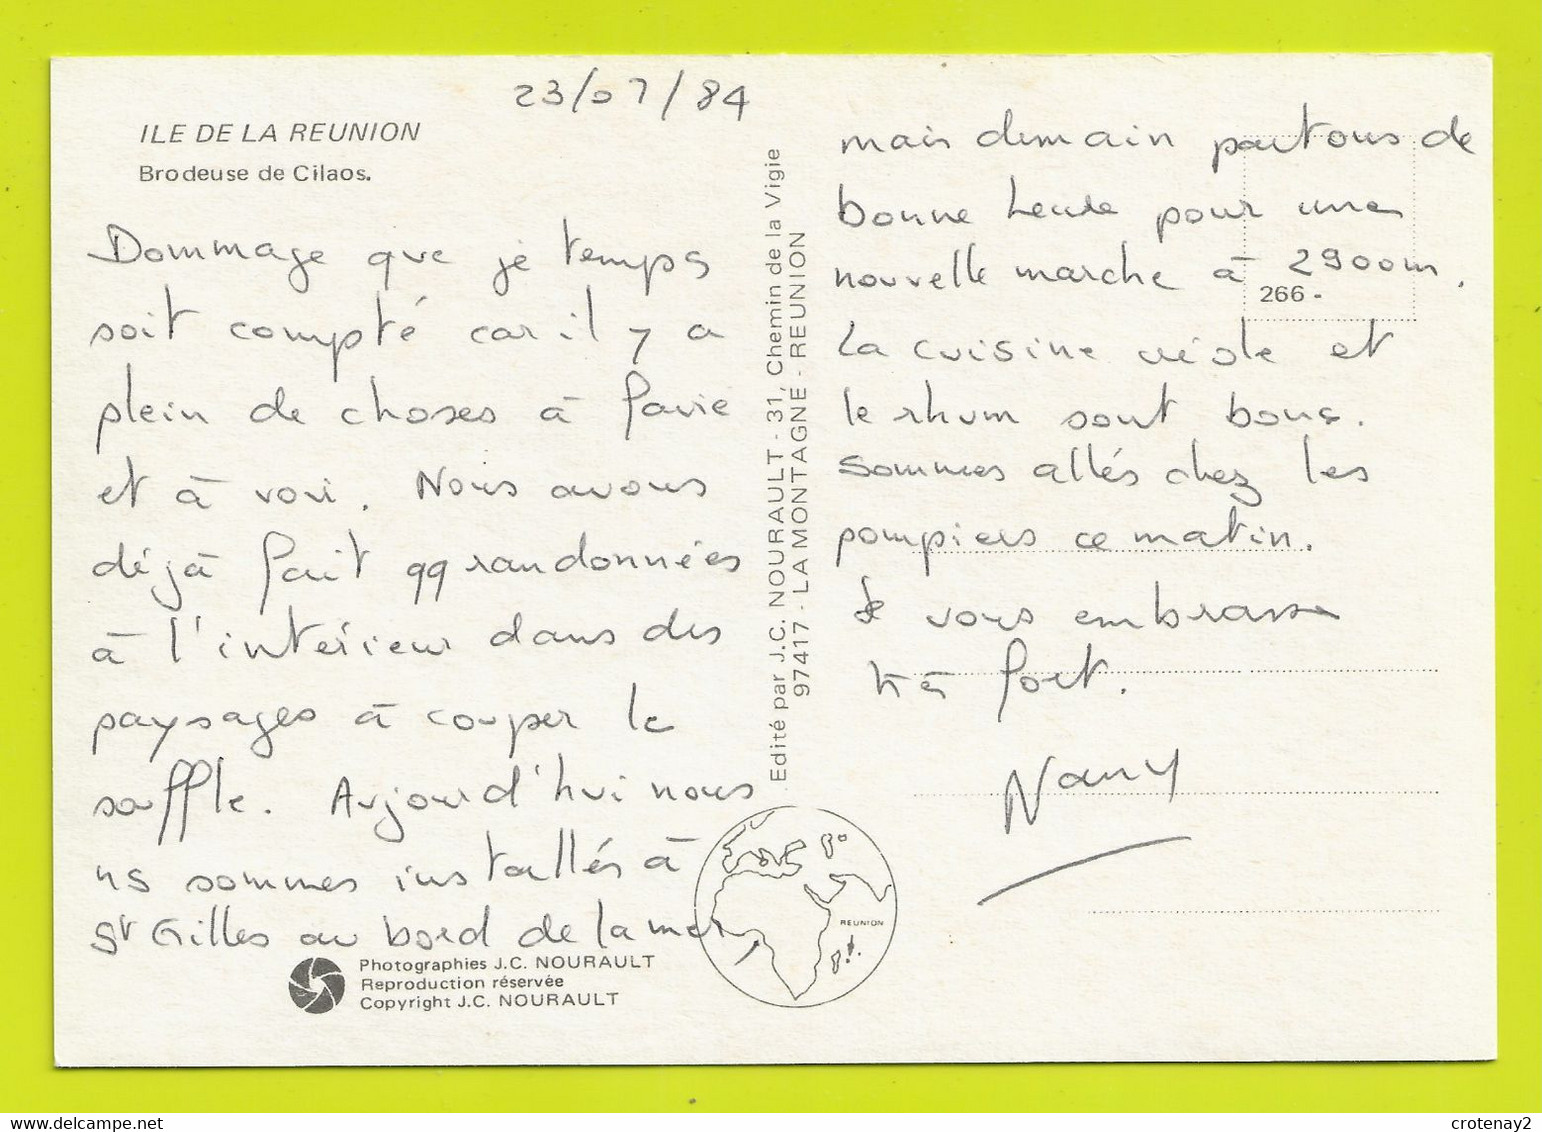 23/07/84
ILE DE LA REUNION
Brodeuse de Cilaos.
Dommage que je temps
soit compté car il y a
plein de choses à favie
et à voir. Nous avons
déjà fait qq randonnées
à l'intérieur dans des
paysages à couper le
souffle. Aujourd'hui nous
ns sommes installés à
St Gilles au bord de la mer,
Photographies J.C. NOURAULT
Reproduction réservée
Copyright J.C. NOURAULT
Edité par J.C. NOURAULT - 31, Chemin de la Vigie
97417 - LA MONTAGNE - REUNION
REUNION
mais demain partons de
bonne heure pour une
nouvelle marche à 2900m.
266 -
La cuisine créole et
le rhum sont bons.
Sommes allés chez les
pompiers ce matin.
Je vous embrasse
très fort.
Nany
www.delcampe.net
crotenay2